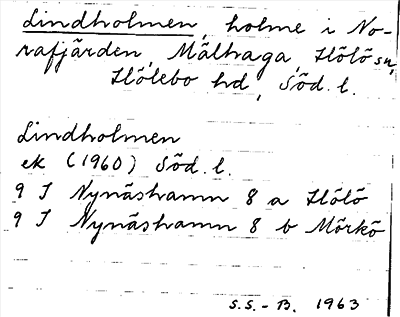 Lindholmen, holme i No-
rafjärden, Mälhaga, Hölö sn,
Hölebo hd, Söd. l.
Lindholmen
ek (1960) Söd. l.
9 I Nynäshamn 8 a Hölö
9 I Nynäshamn 8 b Mörkö
S.S. - B. 1963